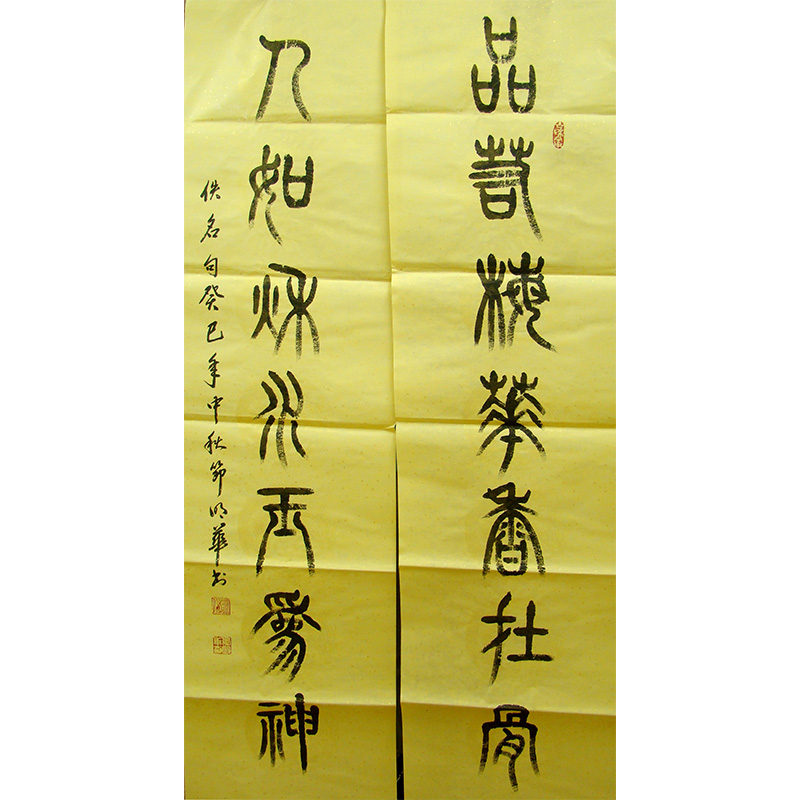 品若梅華香在骨
人如秋水玉為神
佚名句癸巳年中秋節明華書